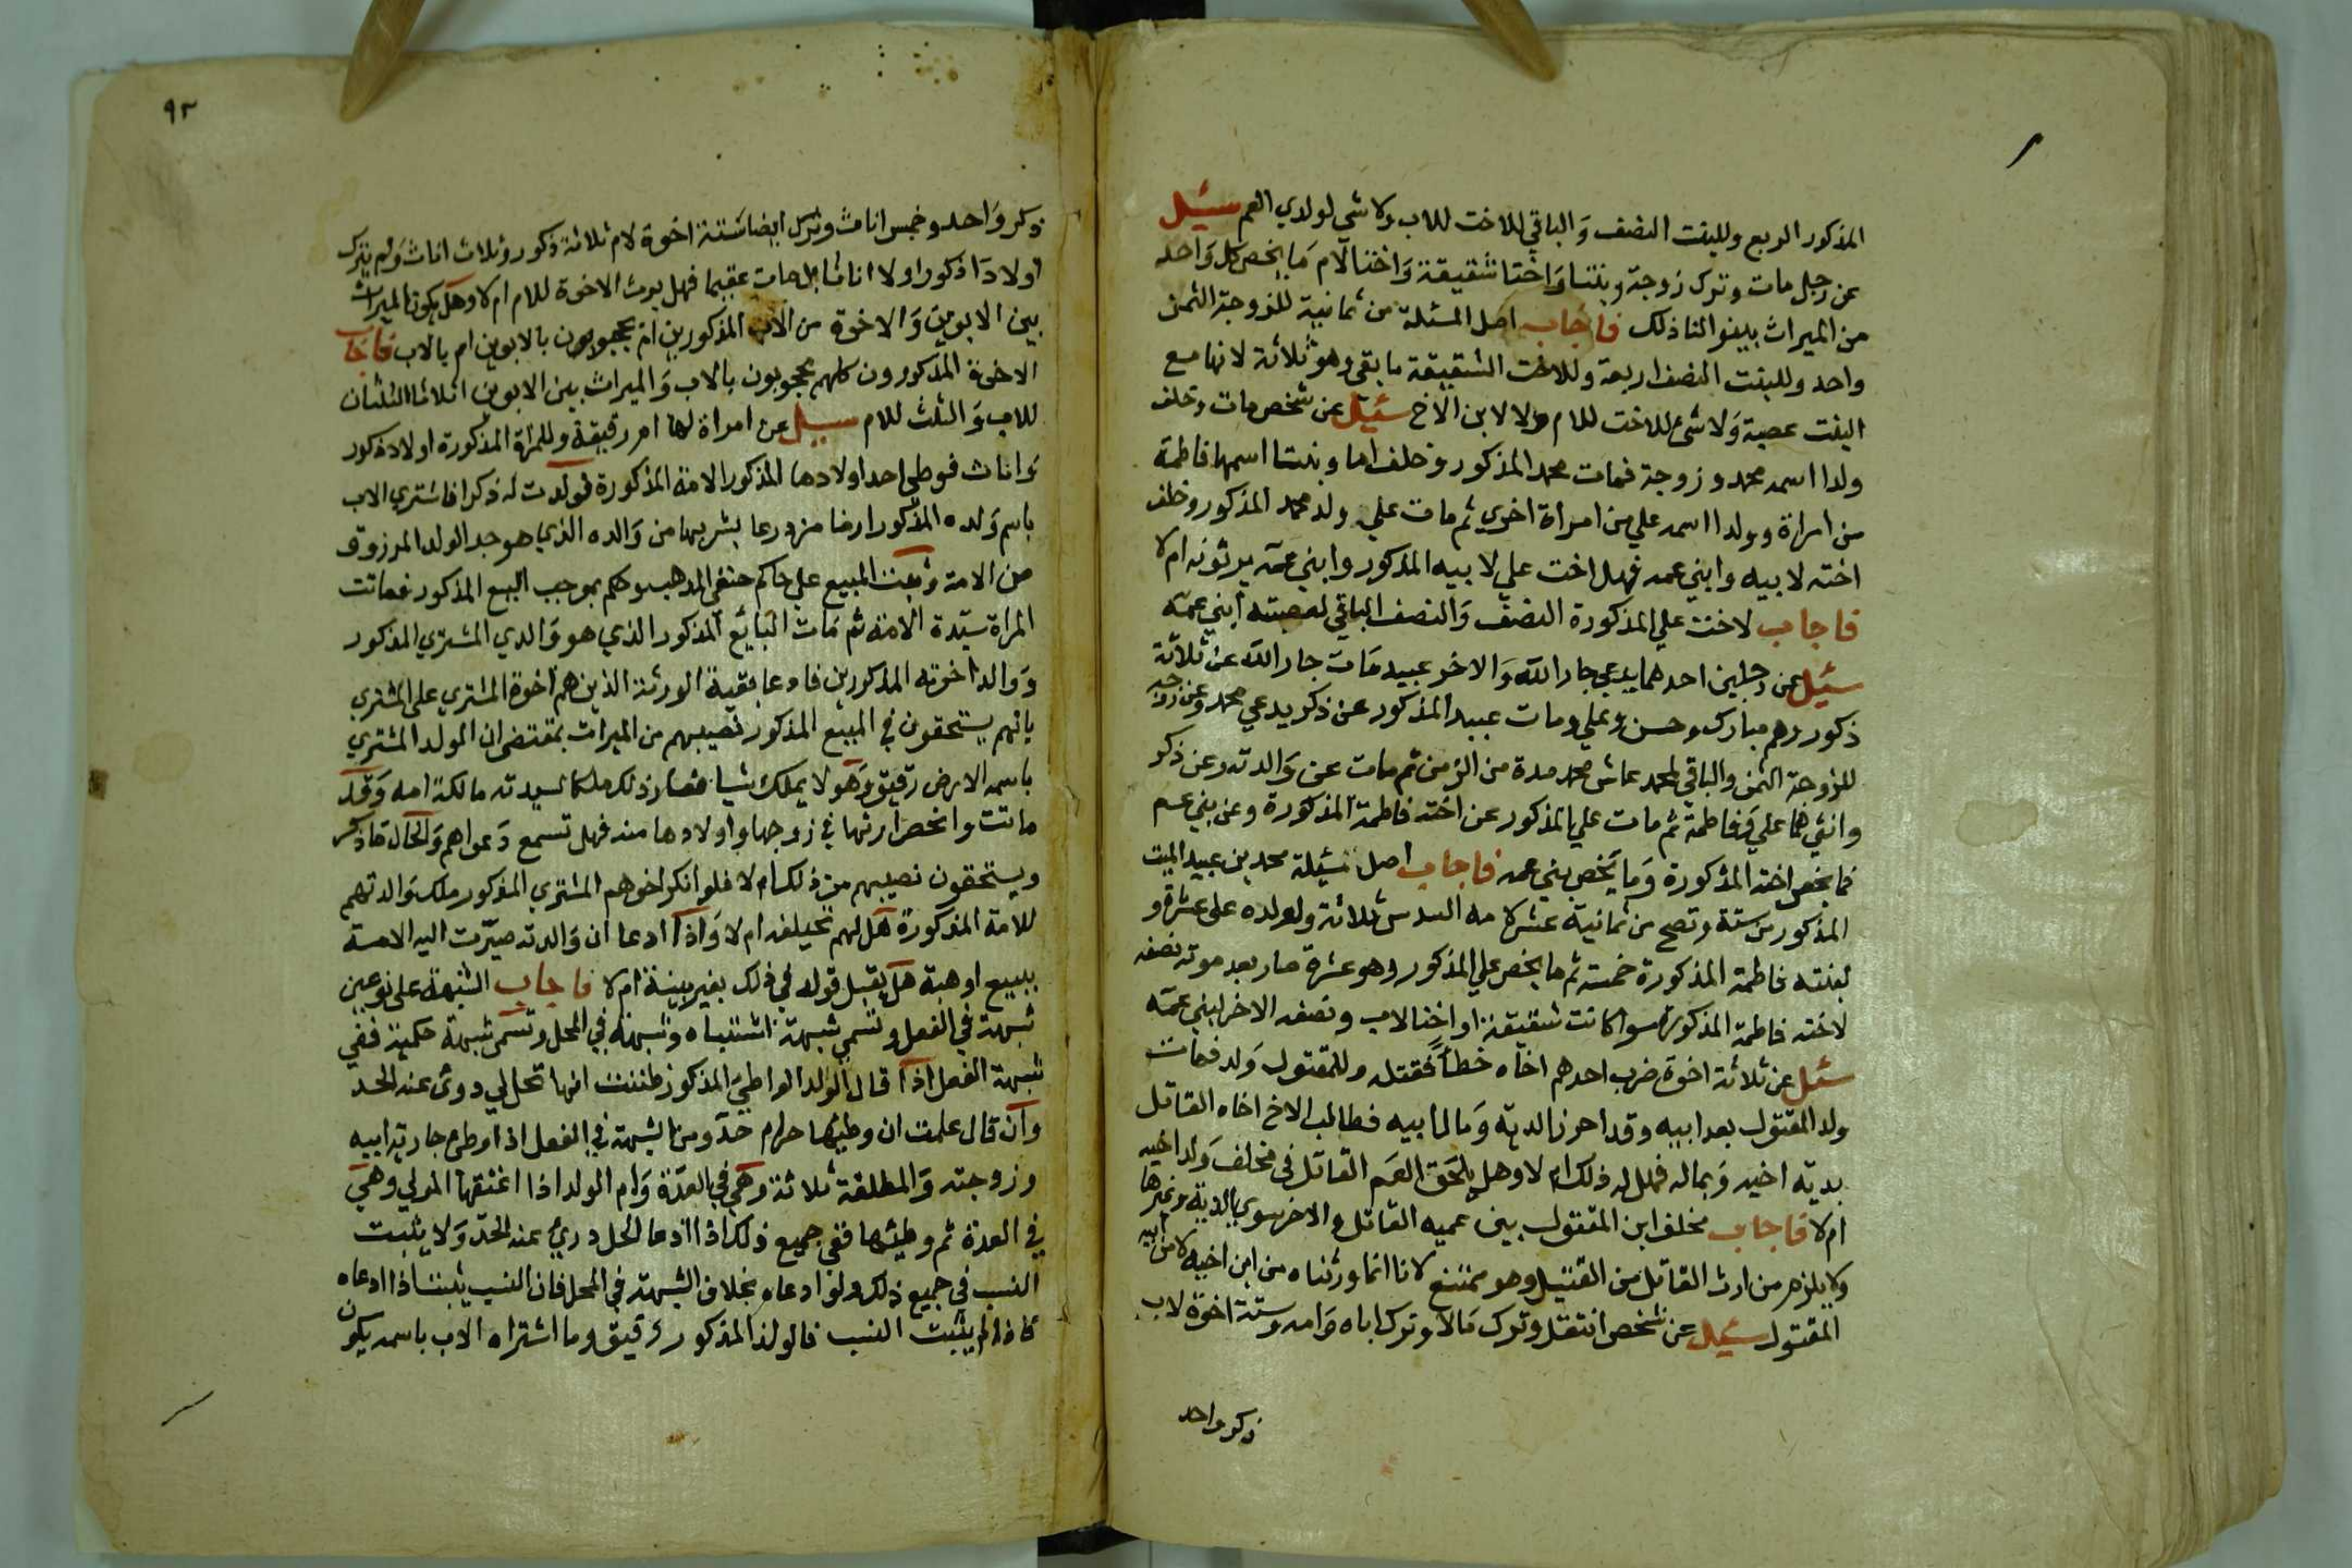 المذكور الربع وللبنت النصف والباقي للاخت للاب ولا شي لولدي العم سئيل
عن رجل مات وترك زوجة وبنتا واختا شقيقة واختا لام ما يخص كل واحد
من الميراث بينوا لنا ذلك فاجاب اصل المسئلة من ثمانية للزوجة الثمن
واحد وللبنت النصف اربعة وللاخت الشقيقة ما بقي وهو ثلاثة لانها مع
البنت عصبة ولا شئ للاخت للام ولا لابن الاخ سئيل عن شخص مات وخلف
ولدا اسمه محمد وزوجة فمات محمد المذكور وخلف اما وبنتا اسمها فاطمة
من امراة وولدا اسمه علي من امراة اخري ثم مات علي ولد محمد المذكور وخلف
اخته لابيه وابني عمه فهل اخت علي لابيه المذكور وابني عمه يرثونه ام لا
فاجاب لاخت علي المذكورة النصف والنصف الباقي لعصبته ابني عمه
سئيل عن رجلين احدهما يدعي جار الله والاخر عبيد مات جار الله عن ثلاثة
ذكور وهم مبارك وحسن وعلي ومات عبيد المذكور عن ذكر يدعي محمد وعن زوجة
للزوجة الثمن والباقي لمحمد عاش محمد مدة من الزمن ثم مات عن والدته وعن ذكر
وانثي هما علي وفاطمة ثم مات علي المذكور عن اخته فاطمة المذكورة وعن بني عم
فما يخص اخته المذكورة وما يخص بني عمه فاجاب اصل مسئيلة محمد بن عبيد الميت
المذكور من ستة وتصح من ثمانية عشر لامه السدس ثلاثة ولولده علي عشرة و
لبنته فاطمة المذكورة خمسة ثم ما يخص علي المذكور وهو عشرة صار بعد موته نصفه
لاخته فاطمة المذكورة سوا كانت شقيقة او اختا لاب ونصفه الاخر لبني عمه
سئل عن ثلاثة اخوة ضرب احدهم اخاه خطأ فقتله وللمقتول ولد فمات
ولد المقتول بعد ابيه وقد احرز الدية ومالا لما بيه فطالب الاخ اخاه القاتل
بدية اخيه وبماله فهل له ذلك ام لا وهل يلحق العم القاتل في مخلف ولد اخيه
ام لا فاجاب مخلف ابن المقتول بين عميه القاتل والاخر سوي بالدية وغيرها
ولا يلزم من ارث القاتل من القتيل وهو ممتنع لانا انما ورثناه من ابن اخيه لا من ابيه
المقتول سئيل عن شخص انتقل وترك مالا وترك اباه وامه وستة اخوة لاب
ذكر واحد
٩٢
ذكر واحد وخمس اناث وترك ايضا ستة اخوة لام ثلاثة ذكور وثلاث اناث ولم يترك
اولادا ذكورا ولا اناثا بل مات عقيما فهل يرث الاخوة للام ام لا وهل يكون الميراث
بين الابوين والاخوة من الاب المذكورين ام محجوبون بالابوين ام بالاب فاجاب
الاخوة المذكورون كلهم محجوبون بالاب والميراث بين الابوين اثلاثا الثلثان
للاب والثلث للام سييل عن امراة لها امة رقيقة وللمراة المذكورة اولاد ذكور
واناث فوطي احد اولادها المذكور الامة المذكورة فولدت له ذكرا فاشتري الاب
باسم ولده المذكور ارضا مزدرعا بشربها من والده الذي هو جد الولد المرزوق
من الامة وثبت المبيع علي حاكم حنفي المذهب وحكم بموجب البيع المذكور فماتت
المراة سيدة الامة ثم مات البايع المذكور الذي هو والدي المشتري المذكور
ووالد اخوته المذكورين فادعا بقية الورثة الذين هم اخوة المشتري على المشتري
بانهم يستحقون في المبيع المذكور نصيبهم من الميراث بمقتضى ان المولد المشتري
باسمه الارض رقيق وهو لا يملك شيا فصار ذلك ملكا لسيدته مالكة امه وقد
ماتت وانحصر ارثها في زوجها واولادها منه فهل تسمع دعواهم والحال ما ذكر
ويستحقون نصيبهم من ذلك ام لا فلو انكر اخوهم المشتري المذكور ملك والدتهم
للامة المذكورة هل لهم تحليفه ام لا واذا ادعا ان والدته صيرت اليه الامة
ببيع او هبة هل يقبل قوله في ذلك بغير بينة ام لا فاجاب الشبهة على نوعين
شبهة في الفعل وتسمي شبهة اشتباه وشبهة في المحل وتسمى شبهة حكمية ففي
شبهة الفعل اذا قال الولد الواطئ المذكور ظننت انها تحل لي دري عنه الحد
وان قال علمت ان وطيها حرام حد ومن الشبهة في الفعل اذا وطئ جارية ابيه
وزوجته والمطلقة ثلاثة وهي في العدة وام الولد اذا اعتقها المولي وهي
في العدة ثم وطيها ففي جميع ذلك اذا ادعا الحل دري عنه الحد ولا يثبت
النسب في جميع ذلك ولو ادعاه بخلاف الشبهة في المحل فان النسب يثبت اذا ادعاه
فاذا لم يثبت النسب فالولد المذكور رقيق وما اشتراه الاب باسمه يكون